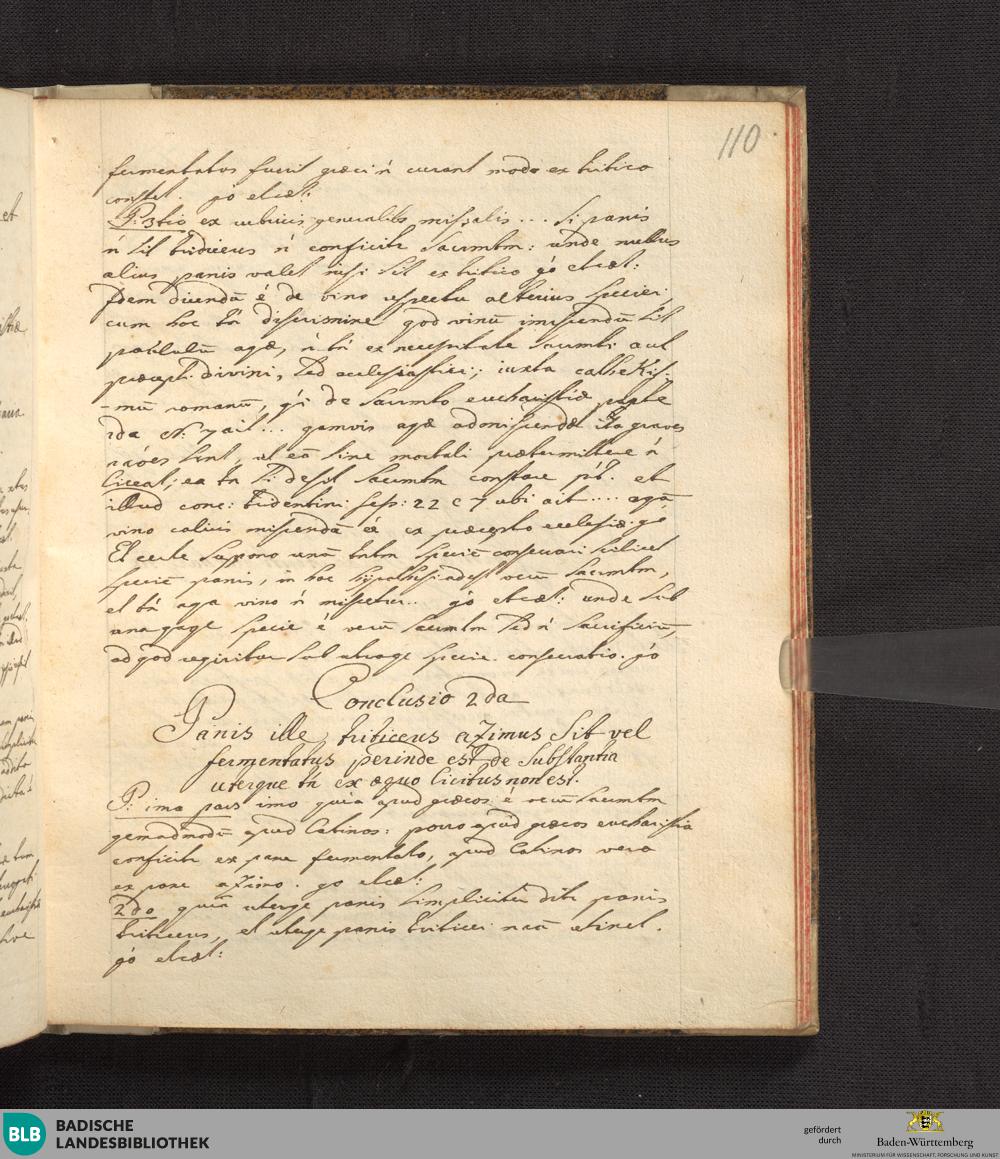 110
fermentatus fuerit græci ñ curant modo ex tritico
constet. go etcæt:
P: 3tio ex rubricis generalibs missalis ... si panis
ñ sit triticeus ñ conficitr sacrmtm: unde nullus
alius panis valet nisi sit ex tritico go etcæt:
Idem dicendū ē de vino respectu alterius speciei;
cum hoc tñ discrimine qod vinū miscendū sit
paululū aqæ, ñ tñ ex necessitate sacrmti aut
præcepti divini, sed ecclesiastici; iuxta cathekis-
-mū romanū, qi de sacrmto eucharistiæ parte
2da N: 7 ait ... qamvis aqæ admiscendæ ita graves
rāoes sint, ut eā sine mortali prætermittere ñ
liceat; ea tñ si desit sacrmtm constare pt. et
illud conc: tridentini sess: 22 c 7 ubi ait .... aqā
vino calicis miscendā ēē ex præcepto ecclesiæ: go
Et certe suppono unā tntm speciē consecrari scilicet
speciē panis, in hac hypothesi adest verū sacrmtm,
et tñ aqa vino ñ miscetur.. go etcæt: unde sub
una qaqe specie ē verū sacrmtm sed ñ sacrificiū,
ad qod reqiritur sub utraqe specie consecratio. go
Conclusio 2da
Panis ille triticeus azimus sit vel
fermentatus perinde est de substantia
uterque tñ ex æquo licitus non est.
P: ima pars imo quia apud græcos ē verū sacrmtm
qemadmodū apud latinos: porro apud græcos eucharistia
conficitr ex pane fermentato, apud latinos vero
ex pane azimo. go etcæt:
2do quia uterqe panis simpliciter dictr panis
triticeus, et uterqe panis triticei nāā retinet.
go etcæt:
BLB
BADISCHE
LANDESBIBLIOTHEK
gefördert
durch
Baden-Württemberg
MINISTERIUM FÜR WISSENSCHAFT, FORSCHUNG UND KUNST